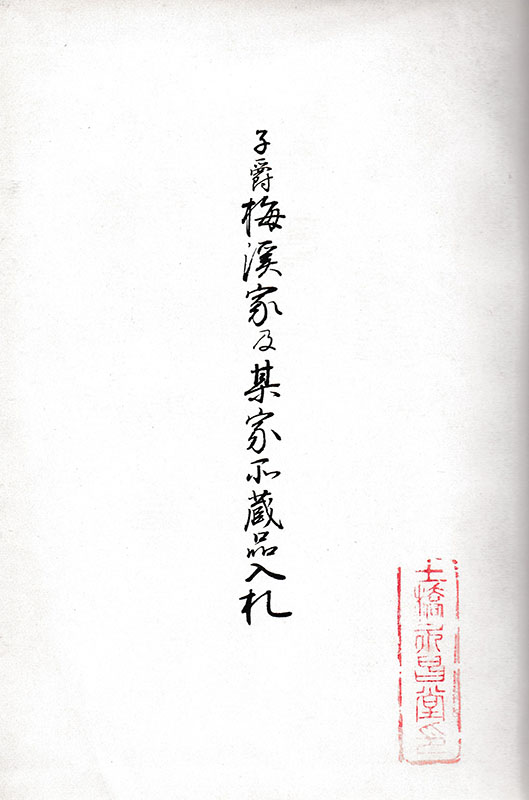 子爵梅溪家及某家所蔵品入札
土橋永昌堂印